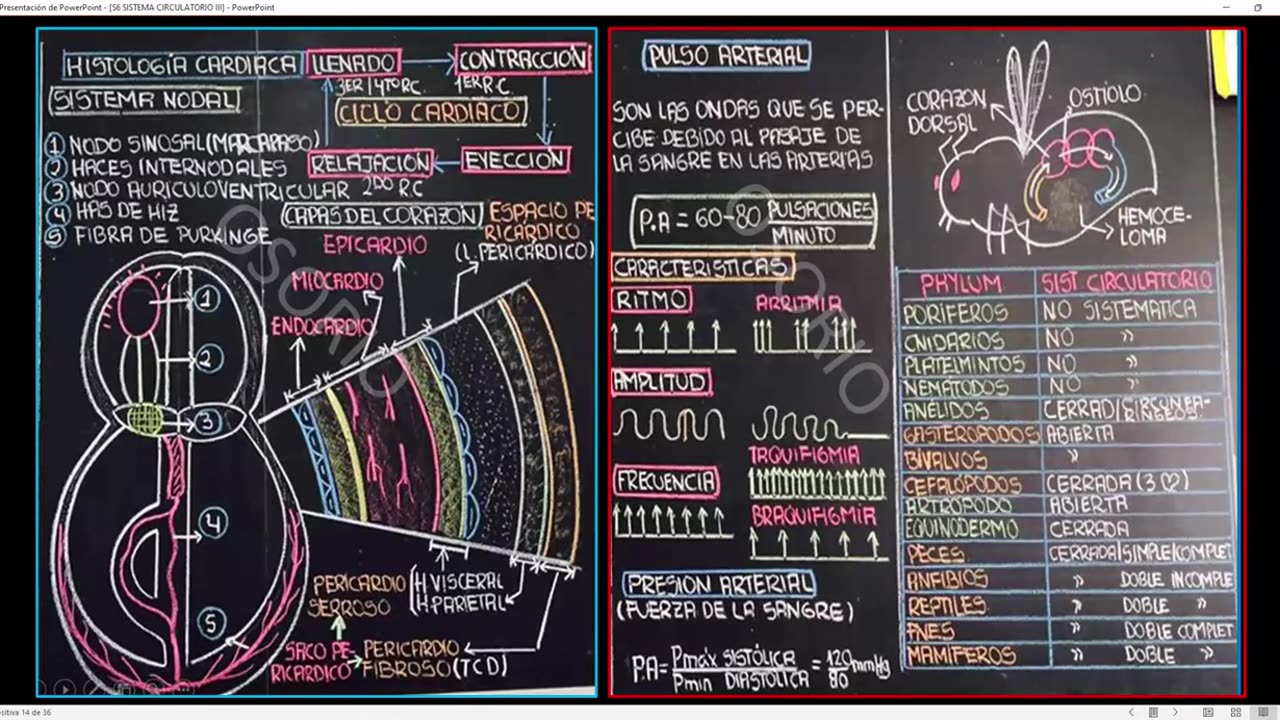 Presentación de PowerPoint - [S6 SISTEMA CIRCULATORIO III] - PowerPoint
HISTOLOGÍA CARDÍACA
SISTEMA NODAL
LLENADO
CONTRACCIÓN
3ER/4TO RC
1ER R.C.
CICLO CARDÍACO
RELAJACIÓN
EYECCIÓN
2DO R.C
① NODO SINOSAL (MARCAPASO)
② HACES INTERNODALES
③ NODO AURICULOVENTRICULAR
④ HAS DE HIZ
⑤ FIBRA DE PURKINGE
CAPAS DEL CORAZON
ESPACIO PE-
RICARDICO
(L. PERICARDICO)
EPICARDIO
MIOCARDIO
ENDOCARDIO
1
2
3
4
5
PERICARDIO
SEROSO
H. VISCERAL
H. PARIETAL
SACO PE-
RICARDICO
PERICARDIO
FIBROSO (TCD)
PULSO ARTERIAL
SON LAS ONDAS QUE SE PER-
CIBE DEBIDO AL PASAJE DE
LA SANGRE EN LAS ARTERIAS
P.A = 60-80 PULSACIONES
MINUTO
CARACTERISTICAS
RITMO
ARRITMIA
AMPLITUD
TAQUIFIGMIA
FRECUENCIA
BRAQUIFIGMIA
PRESION ARTERIAL
(FUERZA DE LA SANGRE)
P.A = Pmáx SISTÓLICA = 120 mmHg
Pmin DIASTOLICA 80
CORAZON
DORSAL
OSTIOLO
HEMOCE-
LOMA
PHYLUM SIST CIRCULATORIO
PORIFEROS NO SISTEMATICA
CNIDARIOS NO "
PLATELMINTOS NO "
NEMATODOS NO "
ANELIDOS CERRAD/
GASTEROPODOS ABIERTA
BIVALVOS "
CEFALÓPODOS CERRADA (3 ♡)
ARTROPODO ABIERTA
EQUINODERMO CERRADA
PECES CERRADA/SIMPLE/COMPLET
ANFIBIOS " DOBLE INCOMPLE
REPTILES " DOBLE "
AVES " DOBLE COMPLET
MAMIFEROS " DOBLE "
OSORIO
OSORIO
ositiva 14 de 36